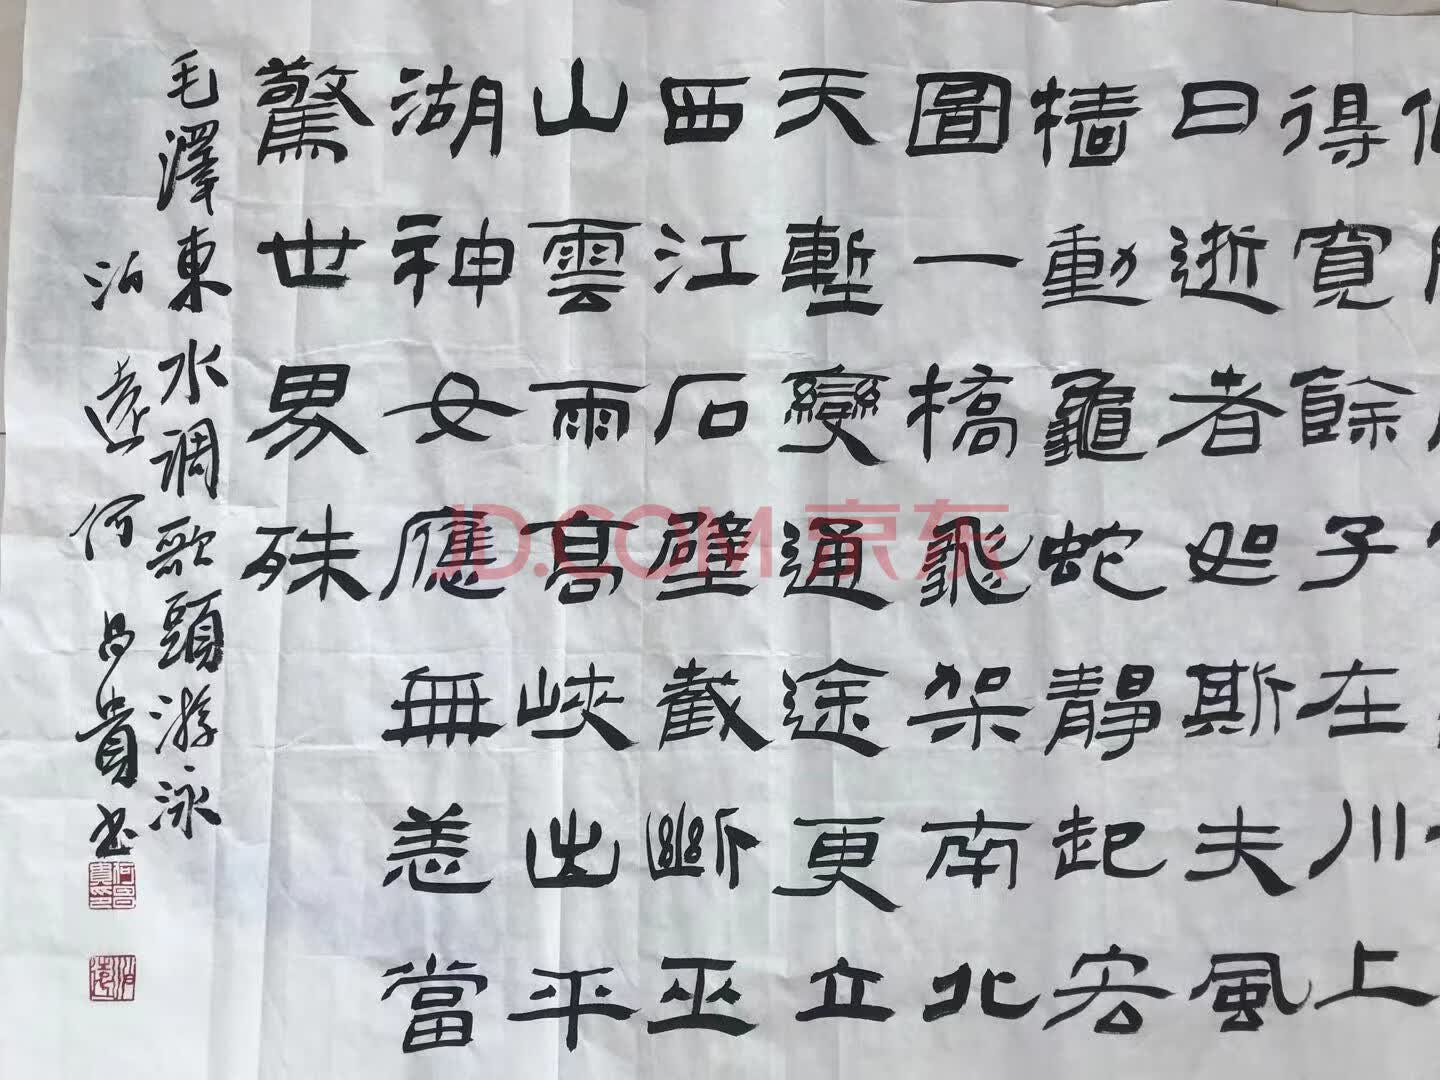 得寬餘子在川上
曰逝者如斯夫風
樯動龜蛇靜起宏
圖一橋飛架南北
天塹變通途更立
西江石壁截斷巫
山雲雨高峽出平
湖神女應無恙當
驚世界殊
毛澤東水调歌頭游泳
泊遠何昌貴书
何昌貴印
泊遠
JD.COM 京东